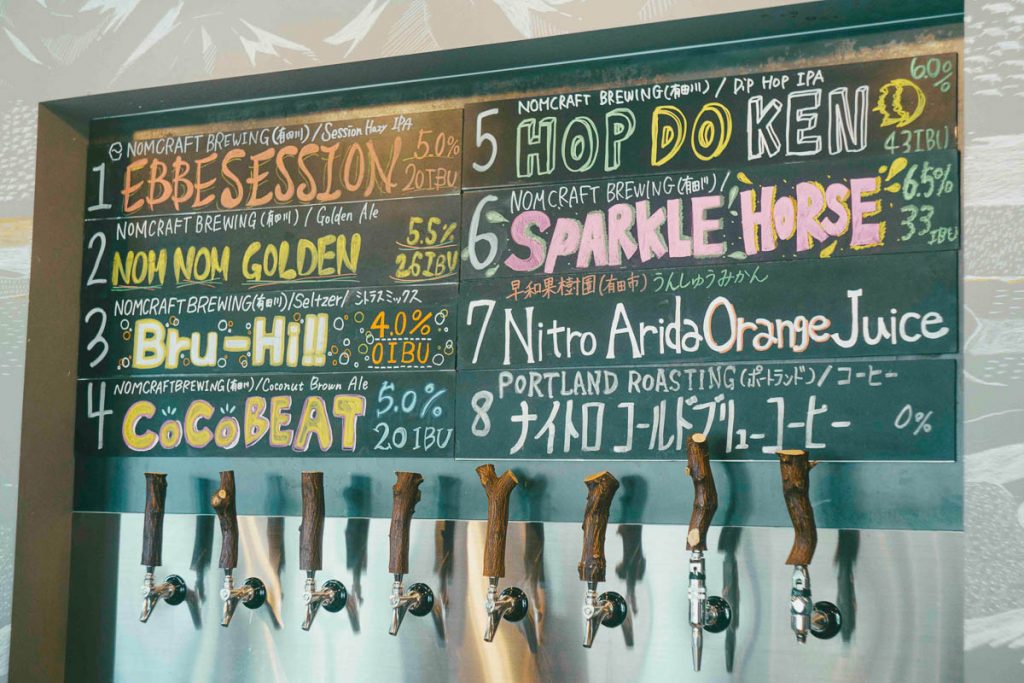 1
NOMCRAFT BREWING(有田川)/Session Hazy IPA
EBBESESSION
5.0%
20IBU
2
NOMCRAFT BREWING(有田川) / Golden Ale
NOM NOM GOLDEN
5.5%
26IBU
3
NOMCRAFT BREWING(有田川)/Seltzer/ シトラスミックス
Bru-Hi!!
4.0%
0IBU
4
NOMCRAFTBREWING(有田川)/Coconut Brown Ale
COCOBEAT
5.0%
20IBU
5
NOMCRAFT BREWING(有田川) / Dip Hop IPA
HOP DO KEN
6.0%
43IBU
6
NOMCRAFT BREWING(有田川)/
SPARKLE HORSE
6.5%
33IBU
7
早和果樹園(有田市) うんしゅうみかん
Nitro Arida Orange Juice
8
PORTLAND ROASTING(ポートランド)/コーヒー
ナイトロ コールドブリューコーヒー
0%